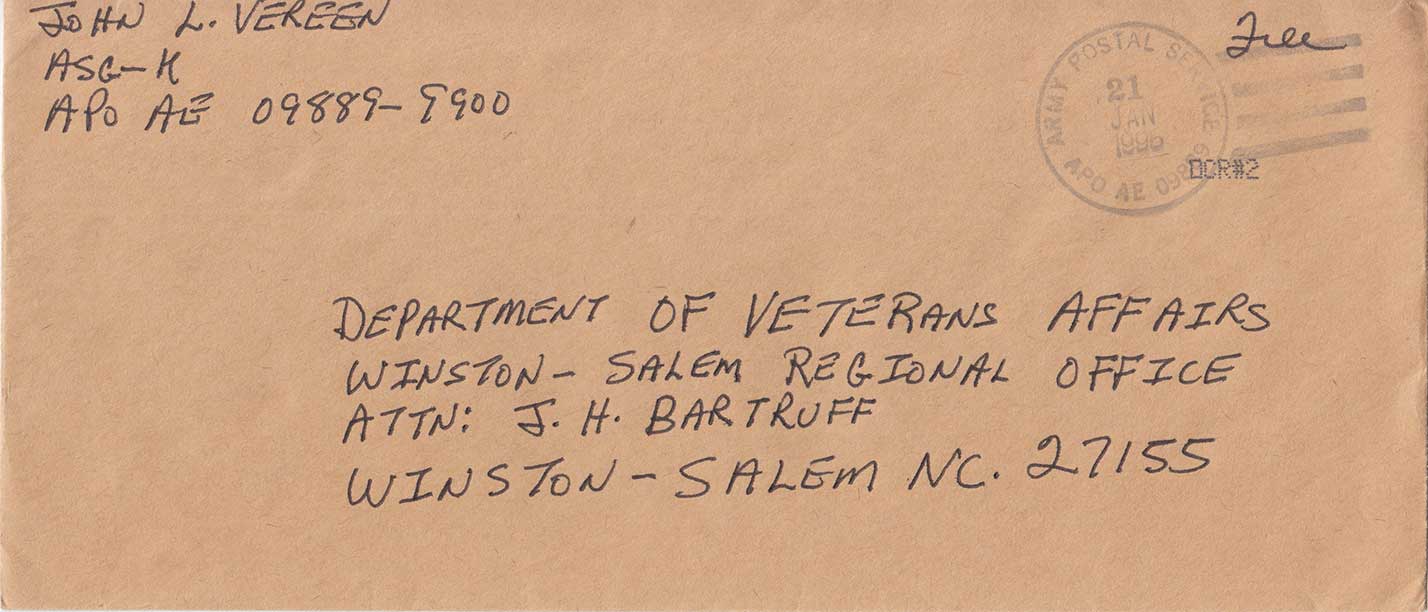 JOHN L. VEREEN
ASG-K
APO AE 09889-9900
Free
ARMY POSTAL SERVICE
21
JAN
1996
APO AE
BCR#2
DEPARTMENT OF VETERANS AFFAIRS
WINSTON-SALEM REGIONAL OFFICE
ATTN: J. H. BARTRUFF
WINSTON-SALEM NC. 27155